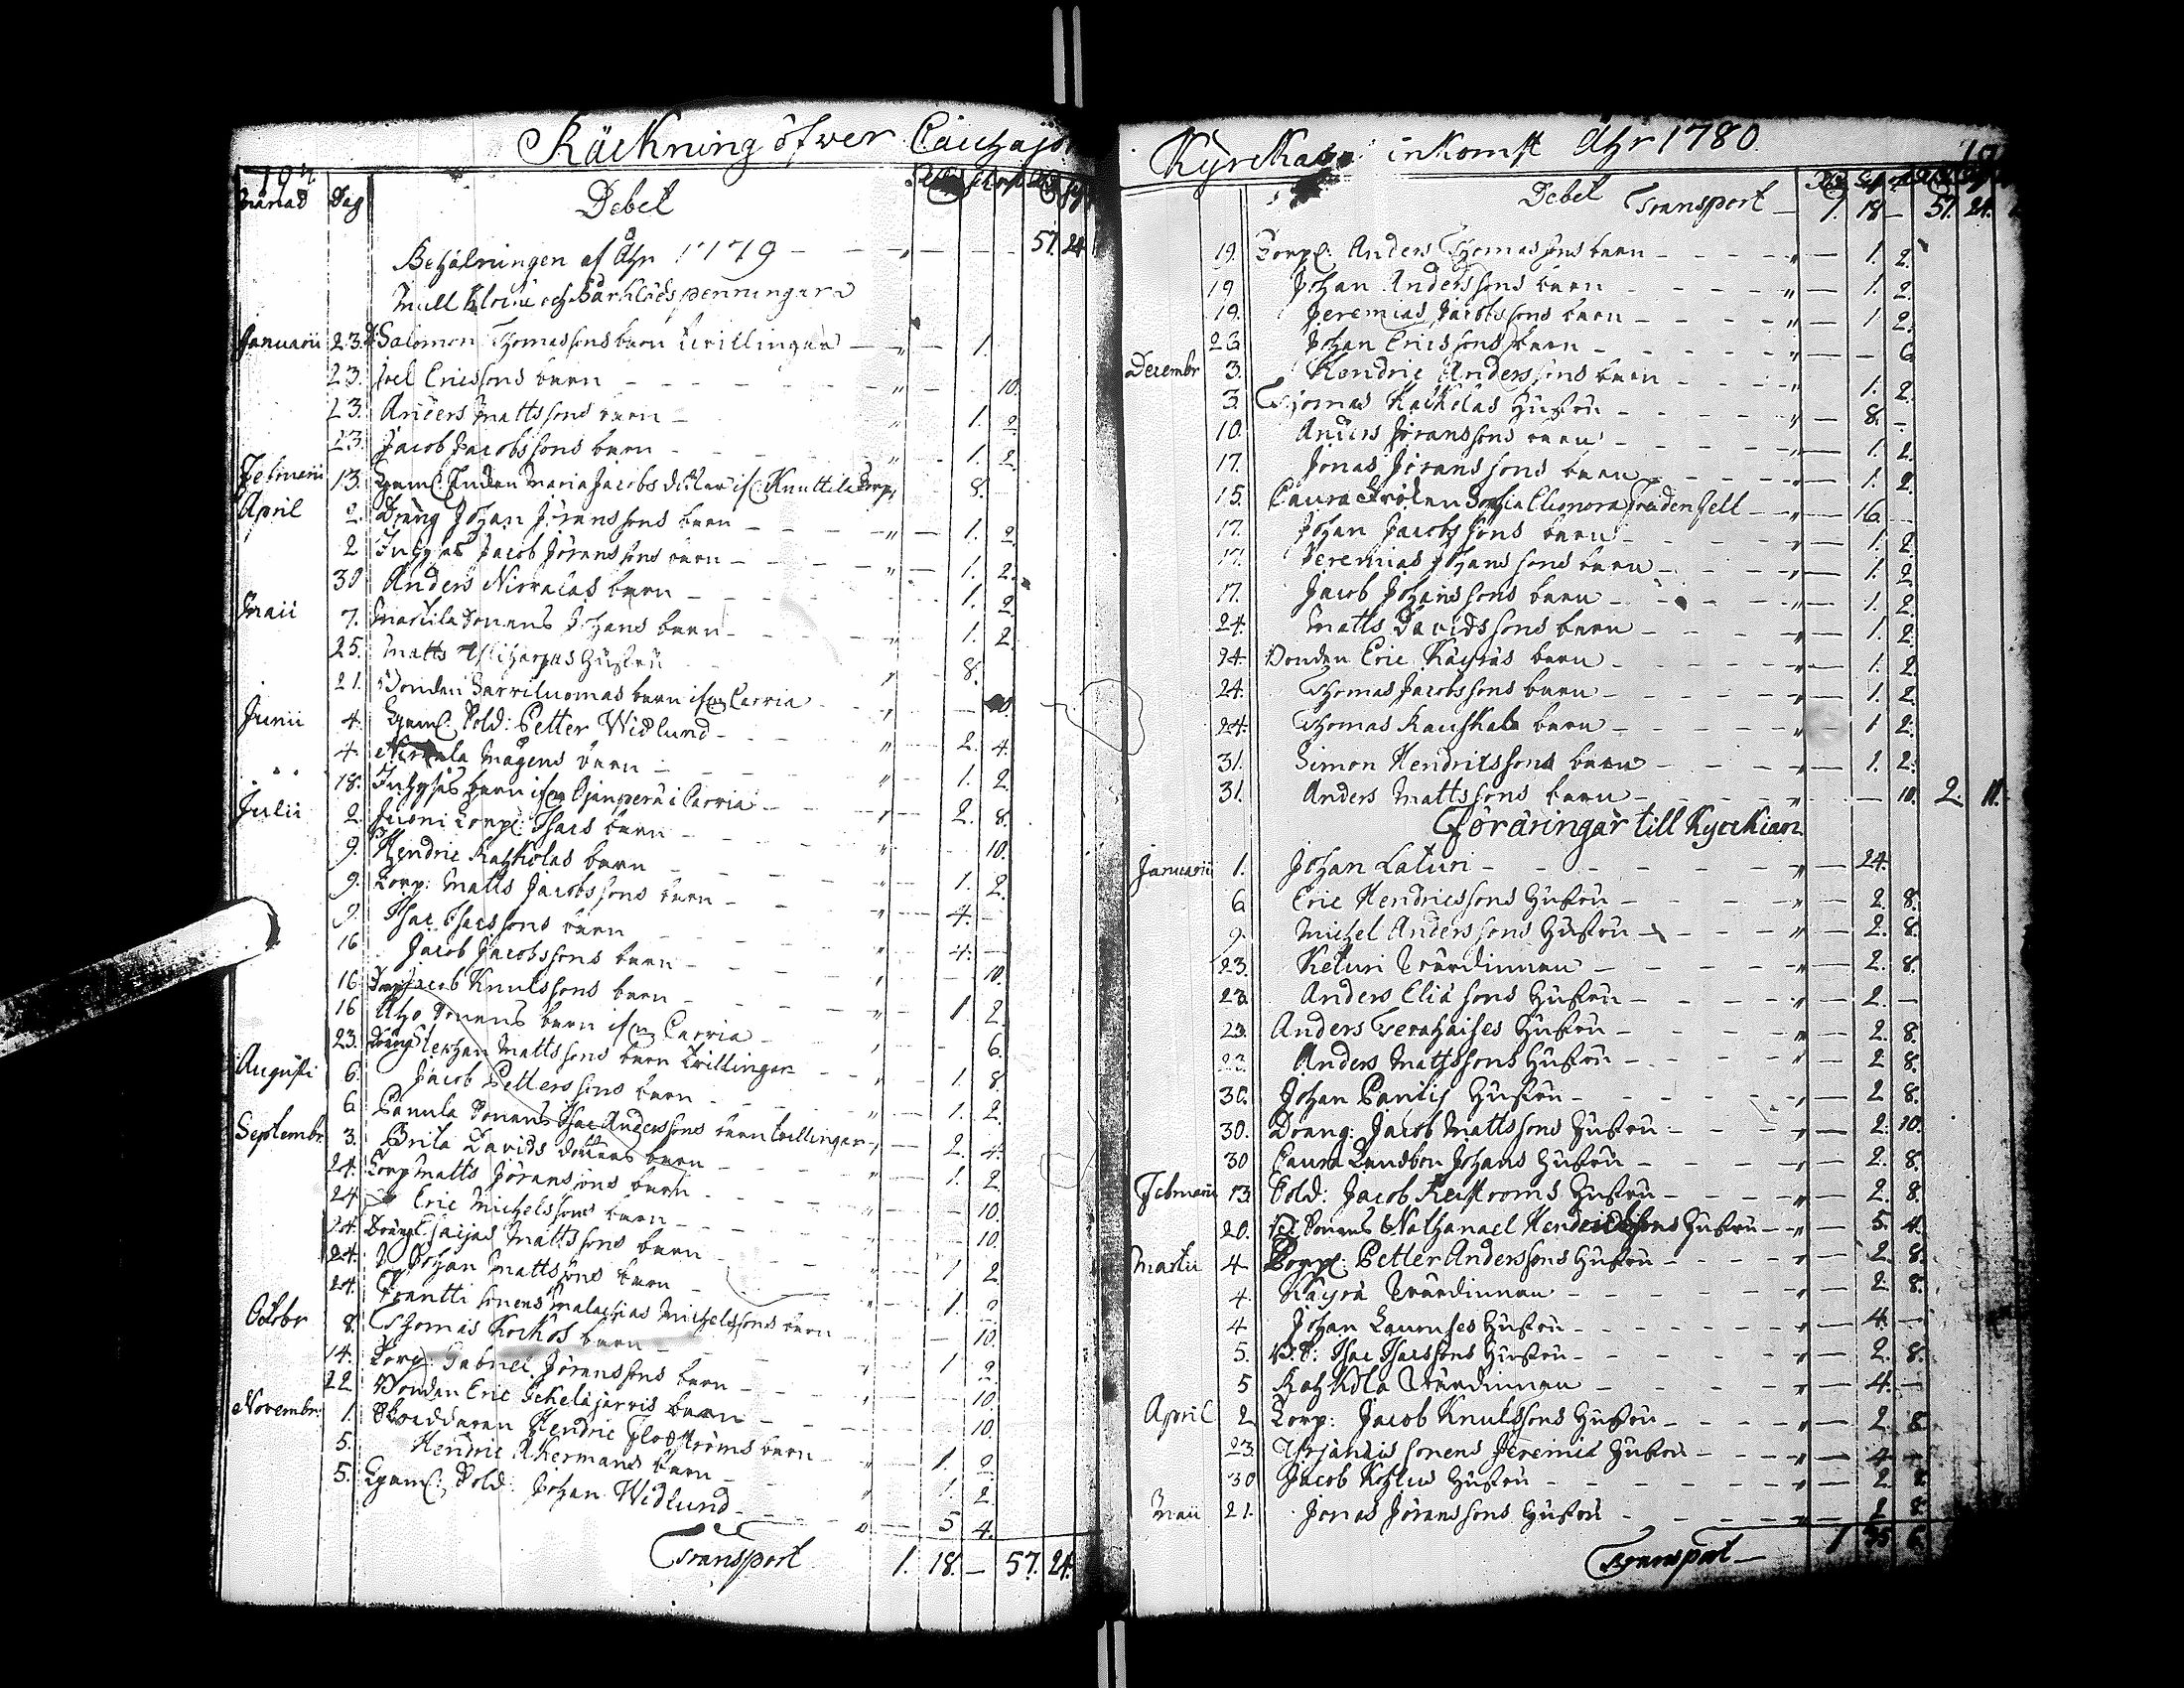 Räckning öfwer Lauchajo
194
Månad Dag Debet
Behålningen af Åhr 1779 - - " - - - 57. 24
Mull Klocke och Bårklädspenningar
Januarii 23. Salomon Thomassons barn twillingar - " - 1.
23. Joel Ericssons barn - - " - - 10.
23. Anders Mattssons barn - " 1. 2.
23. Jacob Jacobssons barn - " - 1. 2.
Februarii 13. Gaml. Enkan Maria Jacobs dotter if: Knuttila 8.
April 2. Dräng Johan Jöranssons barn - - " - 1. 2.
2 Inhyses Jacob Jöranssons barn - - " - 1. 2.
30 Anders Nirvalas barn - 1. 2.
Maii 7. Mattila sonens Johans barn - - " 1. 2.
25. Matts Hustru " 8.
21. Bonden Sarviluomas barn Carvia - " - 10.
Junii 4. Gaml. Sold: Petter Widlund - - " 2. 4.
4. Nirvala Mågens barn - - " - 1. 2.
18. Inhyses barn i Carvia - - " - 2. 8.
Julii 2. Juoni Torp: Isacs barn - - " 10.
9. Hendric Katzkolas barn - - " - 1. 2.
9. Torp: Matts Jacobssons barn - - " - 4. -
9. Isac Isacssons barn - - " 4. -
16 Jacob Jacobssons barn - - " - 10.
16 Jacob Knutssons barn - - " - 1. 2.
16 Aho sonens barn Carvia - " - 6.
23. Dräng Stephan Mattssons barn twillingar - " - 1. 8.
Augusti 6. Jacob Petterssons barn - - " - 1. 2.
6. Panula sonens Isac Anderssons barn twillingar - " - 2. 4.
Septembr. 3. Brita Davids dotters barn - - " - 1. 2.
24. Torp Matts Jöranssons barn - - " - 10.
24 Eric Michelssons barn - - 10.
24. Dräng Esaijas Mattssons barn - " - 1 2.
24. Johan Mattssons barn - " - 1. 2.
24. Frantti sonens Malachias Michelssons barn - - 10.
Octobr 8. Thomas Korkos barn - " 1 2.
14. Torp: Gabriel Jöranssons barn - - 10.
22. Bonden Eric Ickeläjärvis barn - - 10.
Novembr. 1. Skräddaren Hendric Flodströms barn - " - 1. 2.
5. Hendric Åkermans barn - " 1. 2.
5. Gaml. Sold: Johan Widlund - - " - 5 4.
Transport 1. 18. - 57. 24.
Kyrckas inkomst Åhr 1780
Debet Transport - 1. 18 - 57. 24.
19. Torp: Anders Thomassons barn - - " - 1. 2.
19 Johan Anderssons barn - - " - 1. 2.
19. Jeremias Jacobssons barn - - " - 1 2.
26 Johan Ericssons barn - - " - - 6
Decembr 3. Hendric Anderssons barn - - " 1. 2.
3. Thomas Kackolas Hustru - - " - 8. -
10. Anders Jöranssons barn - - " - 1. 2.
17. Jonas Jöranssons barn - - " - 1. 2.
15. Caura Fröken Sophia Eleonora Frudensell - " - 16. -
17. Johan Jacobssons barn - - " - 1. 2
17. Jeremias Johanssons barn - - " - 1. 2
17. Jacob Johanssons barn - - " - 1. 2.
24. Matts Davidssons barn - - " - 1. 2.
24. Bonden Eric Käyräs barn - - " - 1. 2
24. Thomas Jacobssons barn - - " - 1. 2.
24. Thomas Rauskala barn - - " - 1 2.
31. Simon Hendricssons barn - - " - 1. 2.
31. Anders Mattssons barn - - " - 10. 2. 11.
Föräringar till Kyrckian
Januarii 1. Johan Laturi - - " - 24.
6 Eric Hendricssons Hustru - - " - 2. 8.
9. Michel Anderssons Hustru - - " - 2. 8.
23. Keturi Wärdinnan - - " - 2. 8.
23 Anders Eliæ sons Hustru - - " - 2. -
23. Anders Hustru - - " - 2. 8.
23 Anders Mattssons Hustru - - " 2 8.
30. Johan Hustru - - " - 2 8.
30. Dräng: Jacob Mattssons Hustru - - " - 2. 10.
30 Caura Landbon Johans Hustru - - " - 2. 8.
Februarii 13 Sold: Jacob Hustru - - " - 2. 8.
20. sonens Nathanael Hendricssons Hustru - " - 5. 4.
Martii 4. Torp: Petter Anderssons Hustru - - " - 2. 8.
4. Käyrä Wärdinnan - - " - 2. 8.
4 Johan Laurises Hustru - - " - 4. -
5. Isac Isacssons Hustru - - " - 2. 8.
5 Katzkola Wärdinnan - - " - 4. -
April 2. Torp: Jacob Knutssons Hustru - - " - 2. 8
23. sonens Jeremiæ Hustru - - " - 4 -
30 Jacob Hustru - - " - 2. 8
Maii 21. Jonas Jöranssons Hustru - - " - 2 8.
Transport - 1 35 6.